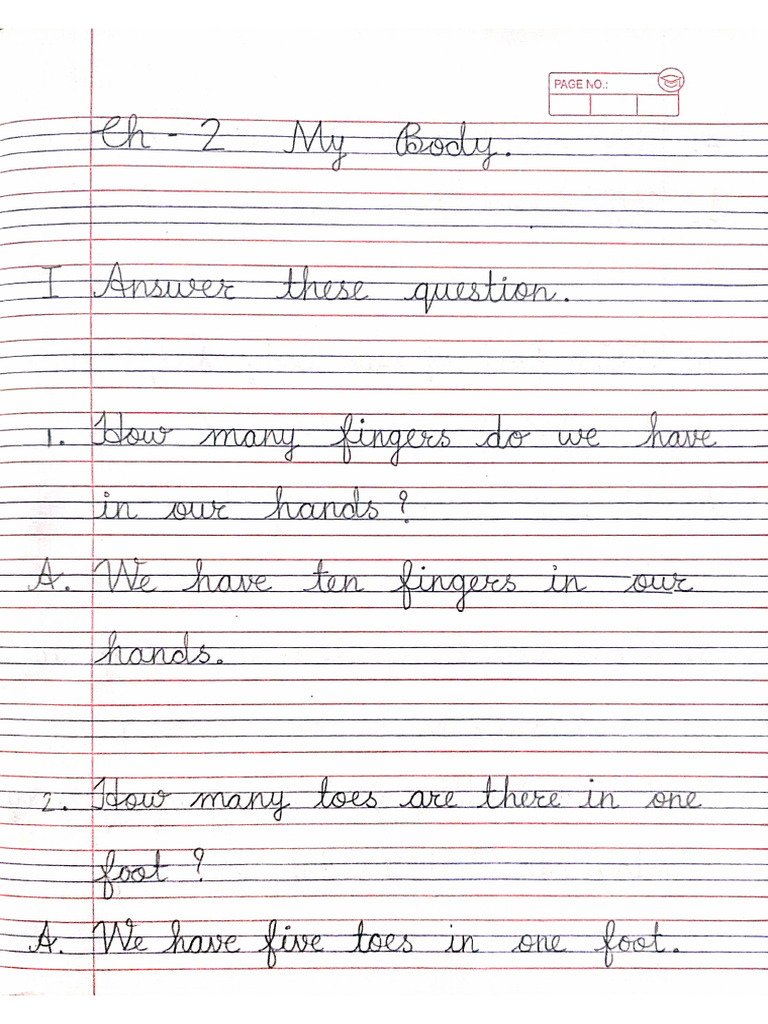 PAGE NO.:
Ch - 2 My Body.
I Answer these question.
1. How many fingers do we have
in our hands?
A. We have ten fingers in our
hands.
2. How many toes are there in one
foot?
A. We have five toes in one foot.